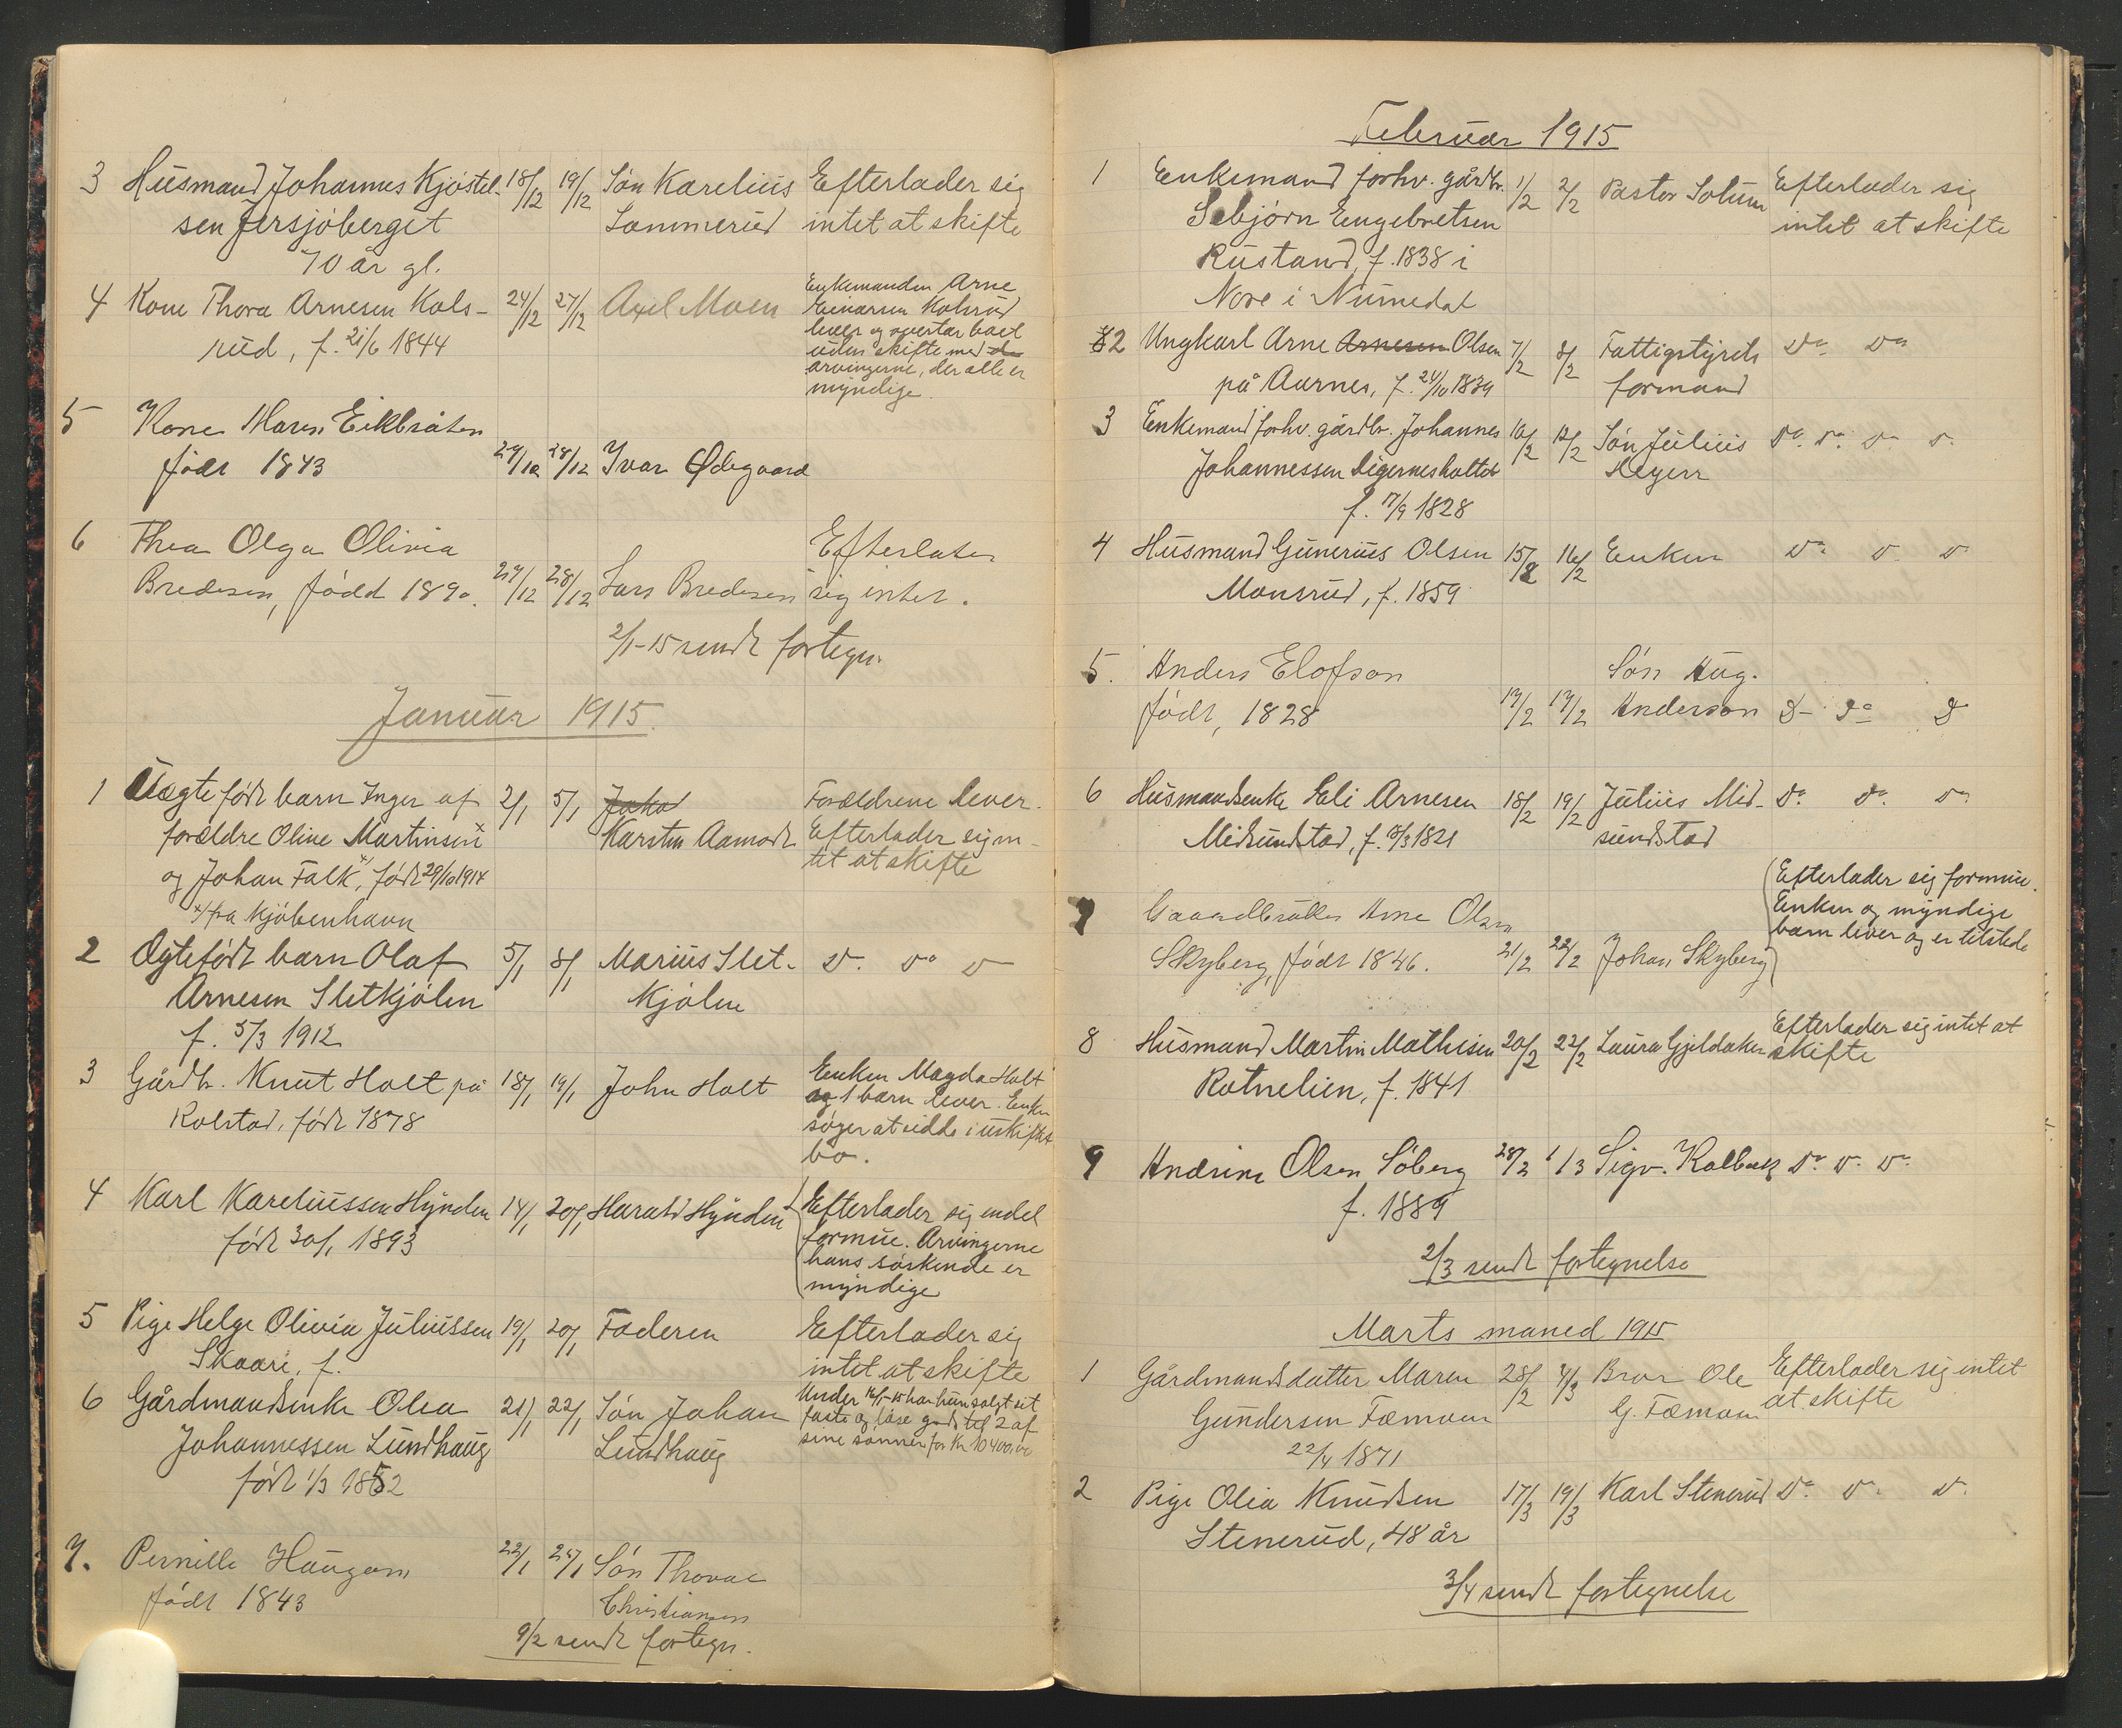 3 Husmand Johannes Kjøstel- 18/12 19/12 Søn Karelius Efterlader sig
sen Jersjøberget Sammerud intet at skifte
70 år gl.
4 Kone Thora Arnesen Kols- 24/12 27/12 Axel Moen Enkemanden Arne
rud, f. 21/6 1844 Einarsen Kolsrud
lever og overtar boet
uden skifte med
arvingerne, der alle er
myndige.
5 Kone Maren Eikbråten
født 1843 27/12 28/12 Ivar Ødegaard
6 Thea Olga Olivia Efterlater
Bredesen, født 1890. 27/12 28/12 Lars Bredesen sig intet.
2/1-15 sendt fortegn.
Januar 1915.
1 Uægte født barn Inger af 2/1 5/1 Jakob Forældrene lever.
forældre Oline Martinsen x Karsten Aamodt Efterlader sig in-
og Johan Falk x/, født 29/10 1914 tet at skifte
x/ fra Kjöbenhavn
2 Ægtefødt barn Olaf 5/1 8/1 Marius Slet- Do. Do Do
Arnesen Sletkjølen kjølen
f. 5/3 1912
3 Gårdbr. Knut Holt på 18/1 19/1 John Holt Enken Magda Holt
Kolstad, født 1878 og 1 barn lever. Enken
søger at sidde i uskiftet
bo.
4 Karl Kareliussen Hynden 14/1 20/1 Harald Hynden Efterlader sig endel
født 30/1 1893 formue. Arvingerne
hans søskende er
myndige
5 Pige Helge Olivia Juliussen 19/1 20/1 Faderen Efterlader sig
Skaari, f. intet at skifte
6 Gårdmandsenke Olea 21/1 22/1 Søn Johan Under 16/1-15 har hun solgt sit
Johannessen Lundhaug Lundhaug faste og løse gods til 2 af
født 1/3 1852 sine sønner for Kr 10400,00
7. Pernille Haugom 22/1 25/1 Søn Thorval
født 1843 Christiansen
9/2 sendt fortegn.
Februar 1915
1 Enkemand forhv. gårdbr. 1/2 2/2 Pastor Solum Efterlader sig
Sebjørn Engebretsen intet at skifte
Rustand, f. 1838 i
Nore i Numedal
2 Ungkarl Arne Arnesen Olsen 7/2 8/2 Fattigstyrets Do Do
på Aurnes, f. 24/10 1839 formand
3 Enkemand forhv. gårdbr. Johannes 10/2 12/2 Søn Julius Do. Do. Do Do
Johannessen Digernesholtet Heyerr
f. 17/9 1828
4 Husmand Gunerius Olsen 15/2 16/2 Enken Do Do Do
Monsrud, f. 1859
5. Anders Elofson Søn Aug.
født, 1828 17/2 17/2 Anderson Do Do Do
6 Husmandsenke Eli Arnesen 18/2 19/2 Julius Mid- Do. Do. Do
Midsundstad, f. 8/3 1821 sundstad
Efterlader sig formue.
7 Gaardbruker Arne Olsen Enken og myndige
Skyberg, født 1846. 21/2 22/2 Johan Skyberg barn lever og er tilstede
8 Husmand Martin Mathisen 20/2 22/2 Laura Gjeldaker Efterlader sig intet at
Rotnelien, f. 1841 skifte
9 Andrine Olsen Søberg 28/2 1/3 Sigv. Kolbæk Do Do Do
f. 1889
2/3 sendt fortegnelse
Marts maned 1915
1 Gårdmandsdatter Maren 28/2 4/3 Bror Ole Efterlader sig intet
Gundersen Fæmoen G. Fæmoen at skifte
22/4 1871
2 Pige Olia Knudsen 17/3 19/3 Karl Stenerud Do Do. Do.
Stenerud, 48 år
3/4 sendt fortegnelse